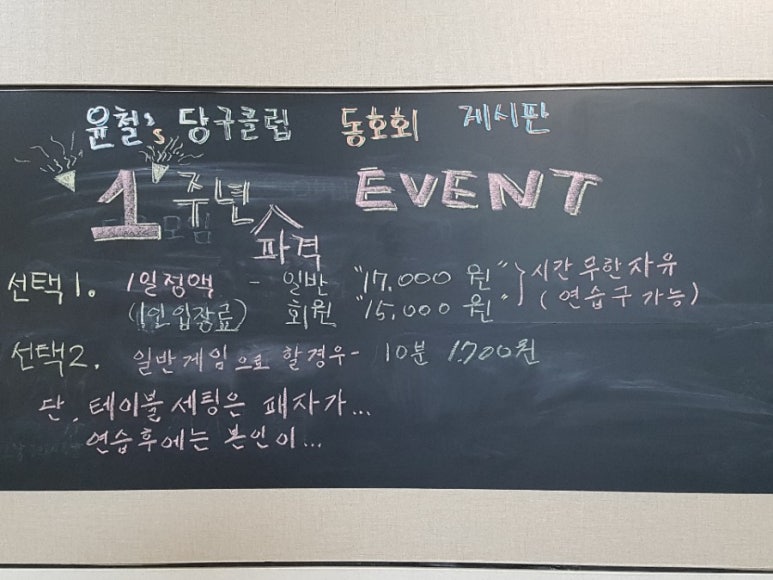 윤철's 당구클럽 동호회 게시판
1주년 파격 EVENT
선택1. 1일정액 - 일반 "17.000 원" } 시간 무한자유
(1인 입장료) 회원 "15.000 원" (연습구 가능)
선택2. 일반게임으로 할경우- 10분 1700원
단. 테이블 세팅은 패자가...
연습후에는 본인이...